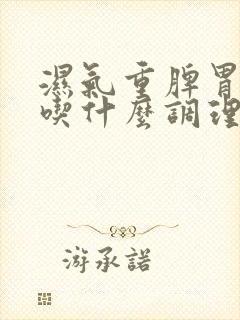 濕氣重脾胃
喫什麼調理
游承諾